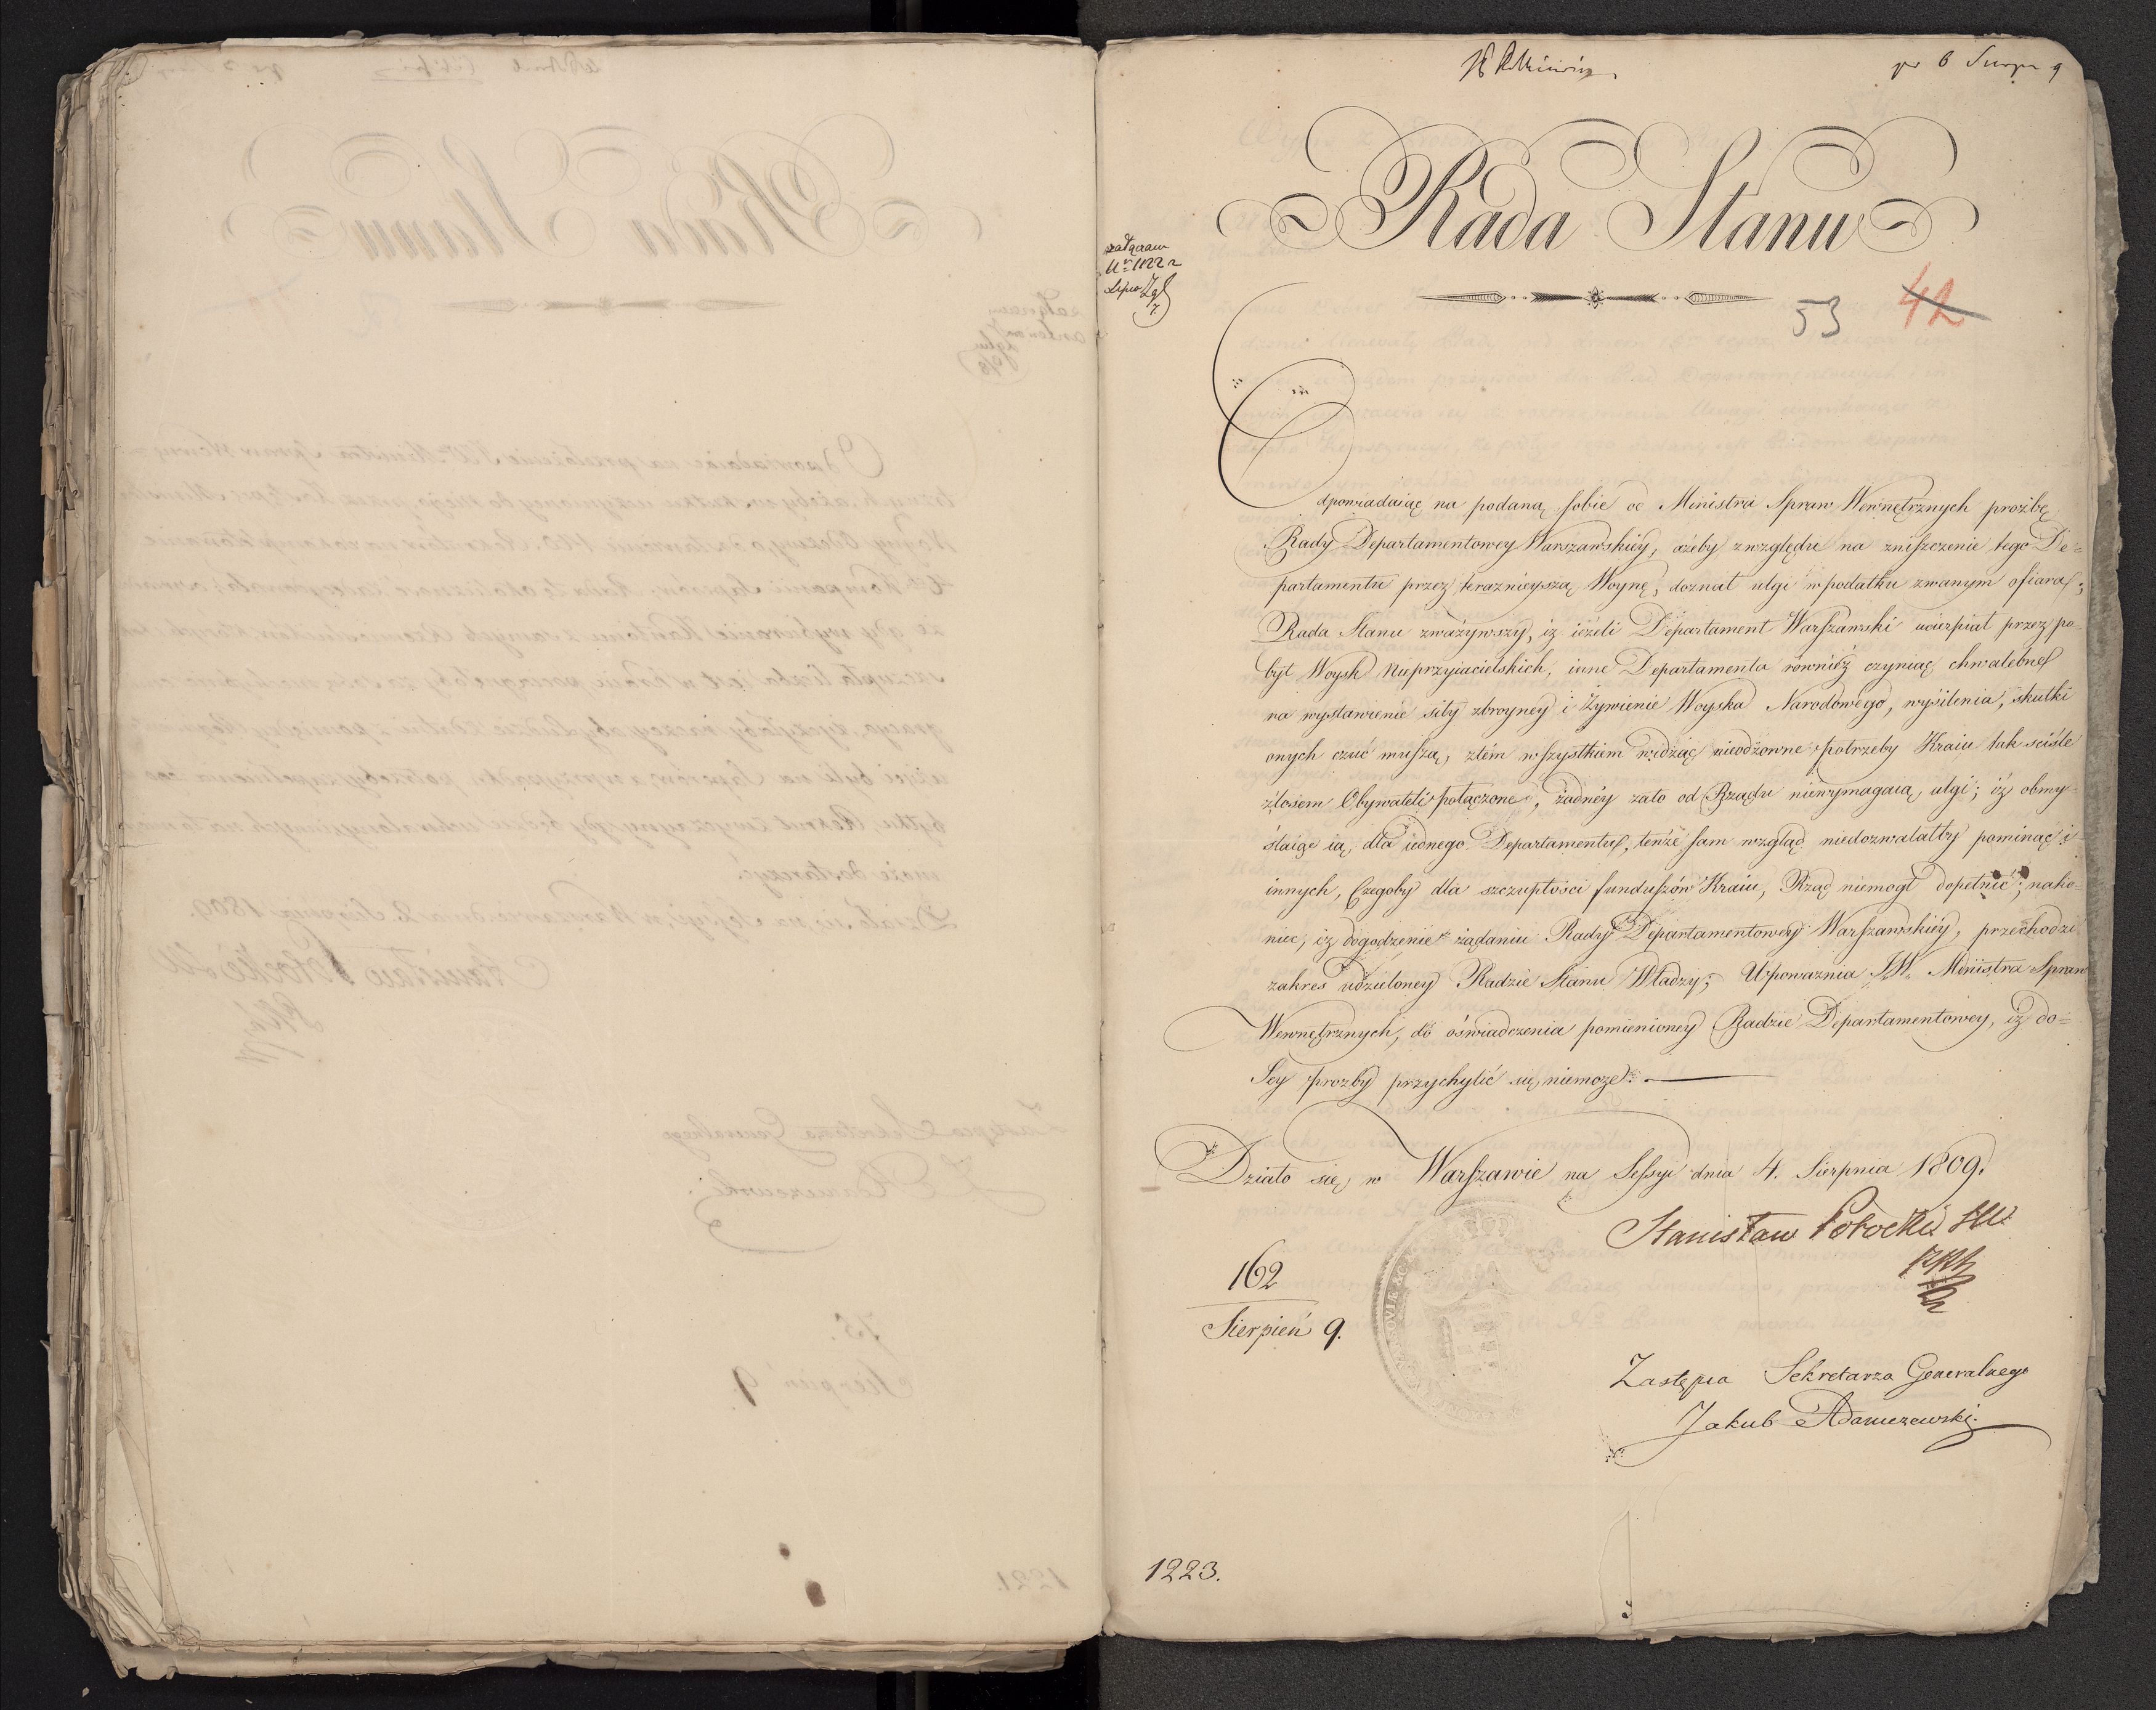 pr 6 Sierpn 9
Rada Stanu
załączam
Nr 1122 a
Lipca
7.
53 42
Odpowiadaiąc na podaną sobie od Ministra Spraw Wewnętrznych prozbę
Rady Departamentowey Warszawskiéy, ażeby zwzględu na zniszczenie tego De=
partamentu przez teraznieyszą Woynę, doznał ulgi w podatku zwanym ofiara;
Rada Stanu zważywszy, iż ieżeli Departament Warszawski ucierpiał przez po-
byt Woysk Nieprzyiacielskich, inne Departamenta równiéż czyniąc chwalebne
na wystawienie siły zbroyney i żywienie Woyska Narodowego, wysilenia, skutki
onych czuć muszą, ztém wszystkiem widząc nieodzowne potrzeby Kraiu tak sciśle
złosem Obywateli połączone, żadnéy zato od Rządu niewymagaią ulgi; iż obmy-
ślaiąc ią dla iednego Departamentu, tenże sam wzgląd niedozwalałby pominąć i
innych, Czegoby dla szczupłości funduszów Kraiu, Rząd niemogł dopełnić; nako-
niec, iż dogodzenie żądaniu Rady Departamentowéy Warszawskiéy, przechodzi
zakres udzieloney Radzie Stanu Władzy; Upoważnia JW. Ministra Spraw
Wewnętrznych, do oświadczenia pomienioney Radzie Departamentowey, iż do=
Jey prozby przychylić się niemoże.
Działo się w Warszawie na Sessyi dnia 4. Sierpnia 1809.
Stanisław Potocki
162
Sierpień 9.
Zastępca Sekretarza Generalnego
Jakub Adamczewski
1223.